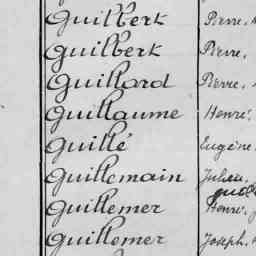 Guilbert Pierre
Guilbert Pierre.
Guillard Pierre.
Guillaume Henri
Guillé Eugène
Guillemain Julien
Guillemer Henri
Guillemer Joseph.